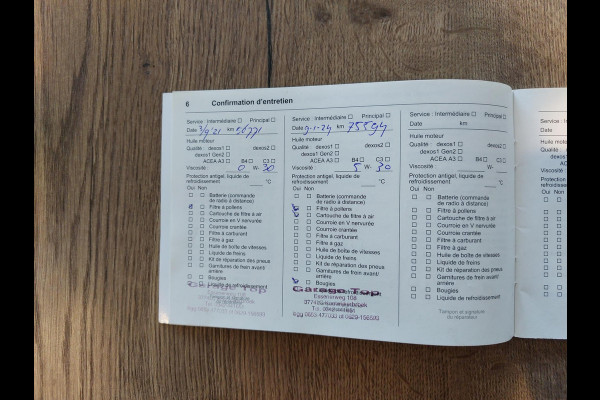 6 Confirmation d'entretien
Service : Intermédiaire ☐ Principal ☐
Date 3/9'21 km 56771
Huile moteur
Qualité : dexos1 ☐ dexos2 ☐
dexos1 Gen2 ☐
ACEA A3 ☐ B4 ☐ C3 ☐
Viscosité 0 W- 30
Protection antigel, liquide de
refroidissement °C
Oui Non
Batterie (commande
de radio à distance)
Filtre à pollens
Cartouche de filtre à air
Courroie en V nervurée
Courroie crantée
Filtre à carburant
Filtre à gaz
Huile de boîte de vitesses
Liquide de freins
Kit de réparation des pneus
Garnitures de frein avant/
arrière
Bougies
Liquide de refroidissement
Service : Intermédiaire ☐ Principal ☐
Date 9-1-24 km 75594
Huile moteur
Qualité : dexos1 ☐ dexos2 ☐
dexos1 Gen2 ☐
ACEA A3 ☐ B4 ☐ C3 ☐
Viscosité 5 W- 30
Protection antigel, liquide de
refroidissement °C
Oui Non
Batterie (commande
de radio à distance)
Filtre à pollens
Cartouche de filtre à air
Courroie en V nervurée
Courroie crantée
Filtre à carburant
Filtre à gaz
Huile de boîte de vitesses
Liquide de freins
Kit de réparation des pneus
Garnitures de frein avant/
arrière
Bougies
Garage Top
Service : Intermédiaire ☐ Principal ☐
Date km
Huile moteur
Qualité : dexos1 ☐ dexos2 ☐
dexos1 Gen2 ☐
ACEA A3 ☐ B4 ☐ C3 ☐
Viscosité W-
Protection antigel, liquide de
refroidissement °C
Oui Non
Batterie (commande
de radio à distance)
Filtre à pollens
Cartouche de filtre à air
Courroie en V nervurée
Courroie crantée
Filtre à carburant
Filtre à gaz
Huile de boîte de vitesses
Liquide de freins
Kit de réparation des pneus
Garnitures de frein avant/
arrière
Bougies
Liquide de refroidissement
Tampon et signature
du réparateur
Service : Int
Date
Huile moteur
Qualité :
dexos1
ACEA
Viscosité
Protection
refroidisse
Oui Non